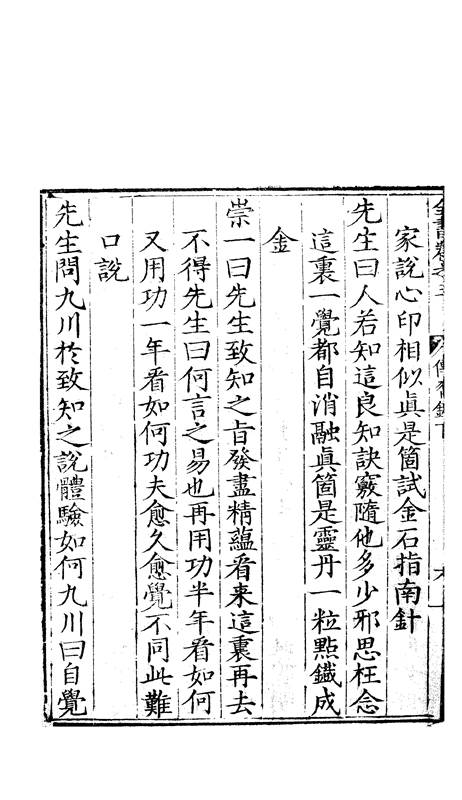 全書卷之三　傳習錄下　六
家說心印相似眞是箇試金石指南針
先生曰人若知這良知訣竅隨他多少邪思枉念
這裏一覺都自消融眞箇是靈丹一粒點鐵成
金
崇一曰先生致知之旨發盡精蘊看來這裏再去
不得先生曰何言之易也再用功半年看如何
又用功一年看如何功夫愈久愈覺不同此難
口說
先生問九川於致知之說體驗如何九川曰自覺